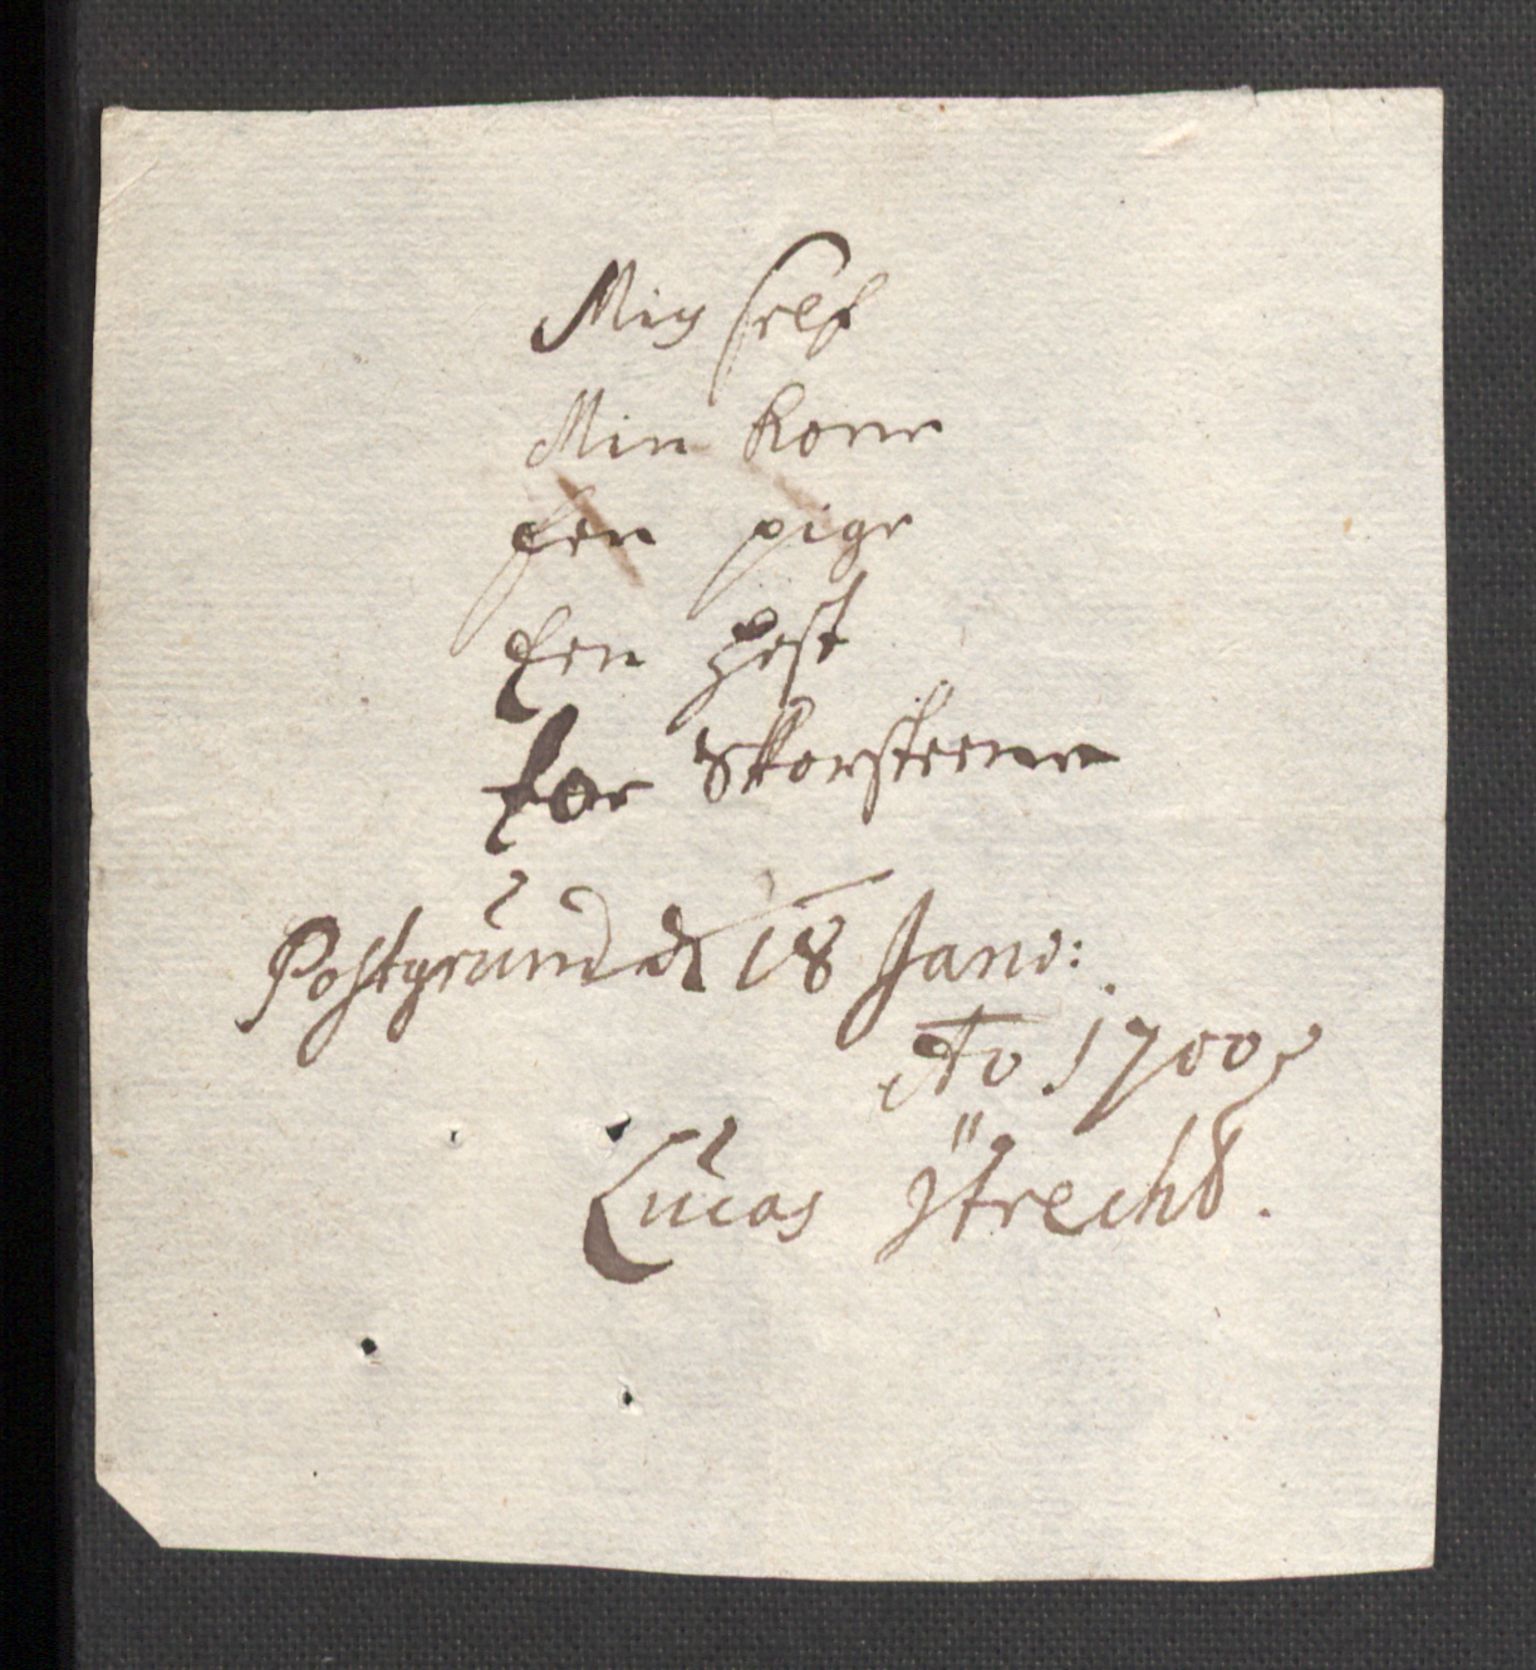 Mig self
Min kone
Een pige
Een Hest
toe Skorsteene
Postgrund d 18 Janv:
Ao 1700
Lucas Ÿtrecht.